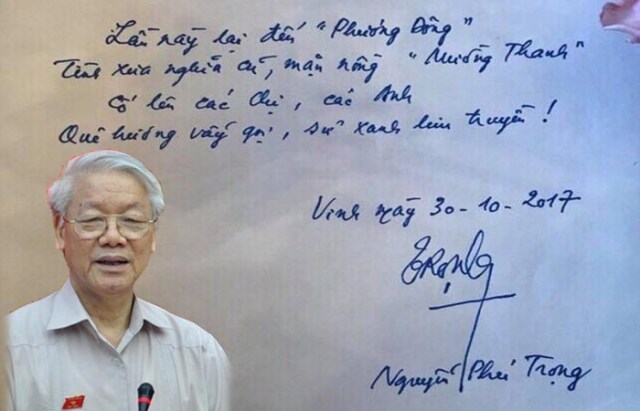 Lần này lại đến "Phương Đông"
Tình xưa nghĩa cũ, mặn nồng "Mường Thanh"
Cố lên các Chị, các Anh
Quê hương vẫy gọi, sử xanh lưu truyền!
Vinh ngày 30-10-2017
Trọng
Nguyễn Phú Trọng